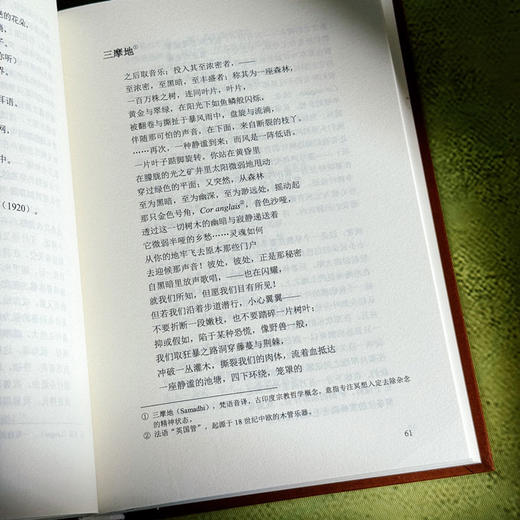 的花朵，
子。
你听）
界。
耳语。
网，
中。
（1920）。
三摩地①
之后取音乐；投入其至浓密者，——
至浓密，至黑暗，至丰盛者；称其为一座森林，
一百万株之树，连同叶片，叶片，
黄金与翠绿，在阳光下如鱼鳞般闪烁，
被翻卷与撕扯于暴风雨中，盘旋与流淌，
伴随那可怕的声音，在下面，来自断裂的枝丫。
……再次，一种静谧到来；而风是一阵低语。
一片叶子踮脚旋转。你站在黄昏里
在朦胧的光之矿井里太阳微弱地甩动
穿过绿色的平面；又突然，从森林
至为黑暗，至为幽深，至为渺远处，摇动起
那只金色号角，Cor anglais②，音色沙哑，
透过这一切树木的幽暗与寂静递送着
它微弱半哑的乡愁……灵魂如何
从你的地牢飞去原本那些门户
去迎候那声音！彼处，彼处，正是那秘密
自黑暗里放声歌唱，——也在闪耀，
就我们所知，但愿我们目有所见！
但若我们沿着步道潜行，小心翼翼——
不要折断一段嫩枝，也不要踏碎一片树叶；
抑或假如，陷于某种恐慌，像野兽一般，
我们取狂暴之路洞穿藤蔓与荆棘，
冲破一丛灌木，撕裂我们的肉体，流着血抵达
一座静谧的池塘，四下环绕，笼罩的
① 三摩地（Samadhi），梵语音译，古印度宗教哲学概念，意指专注冥想入定去除杂念
的精神状态。
② 法语“英国管”，起源于 18 世纪中欧的木管乐器。
61